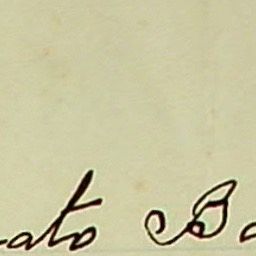 ato Ba